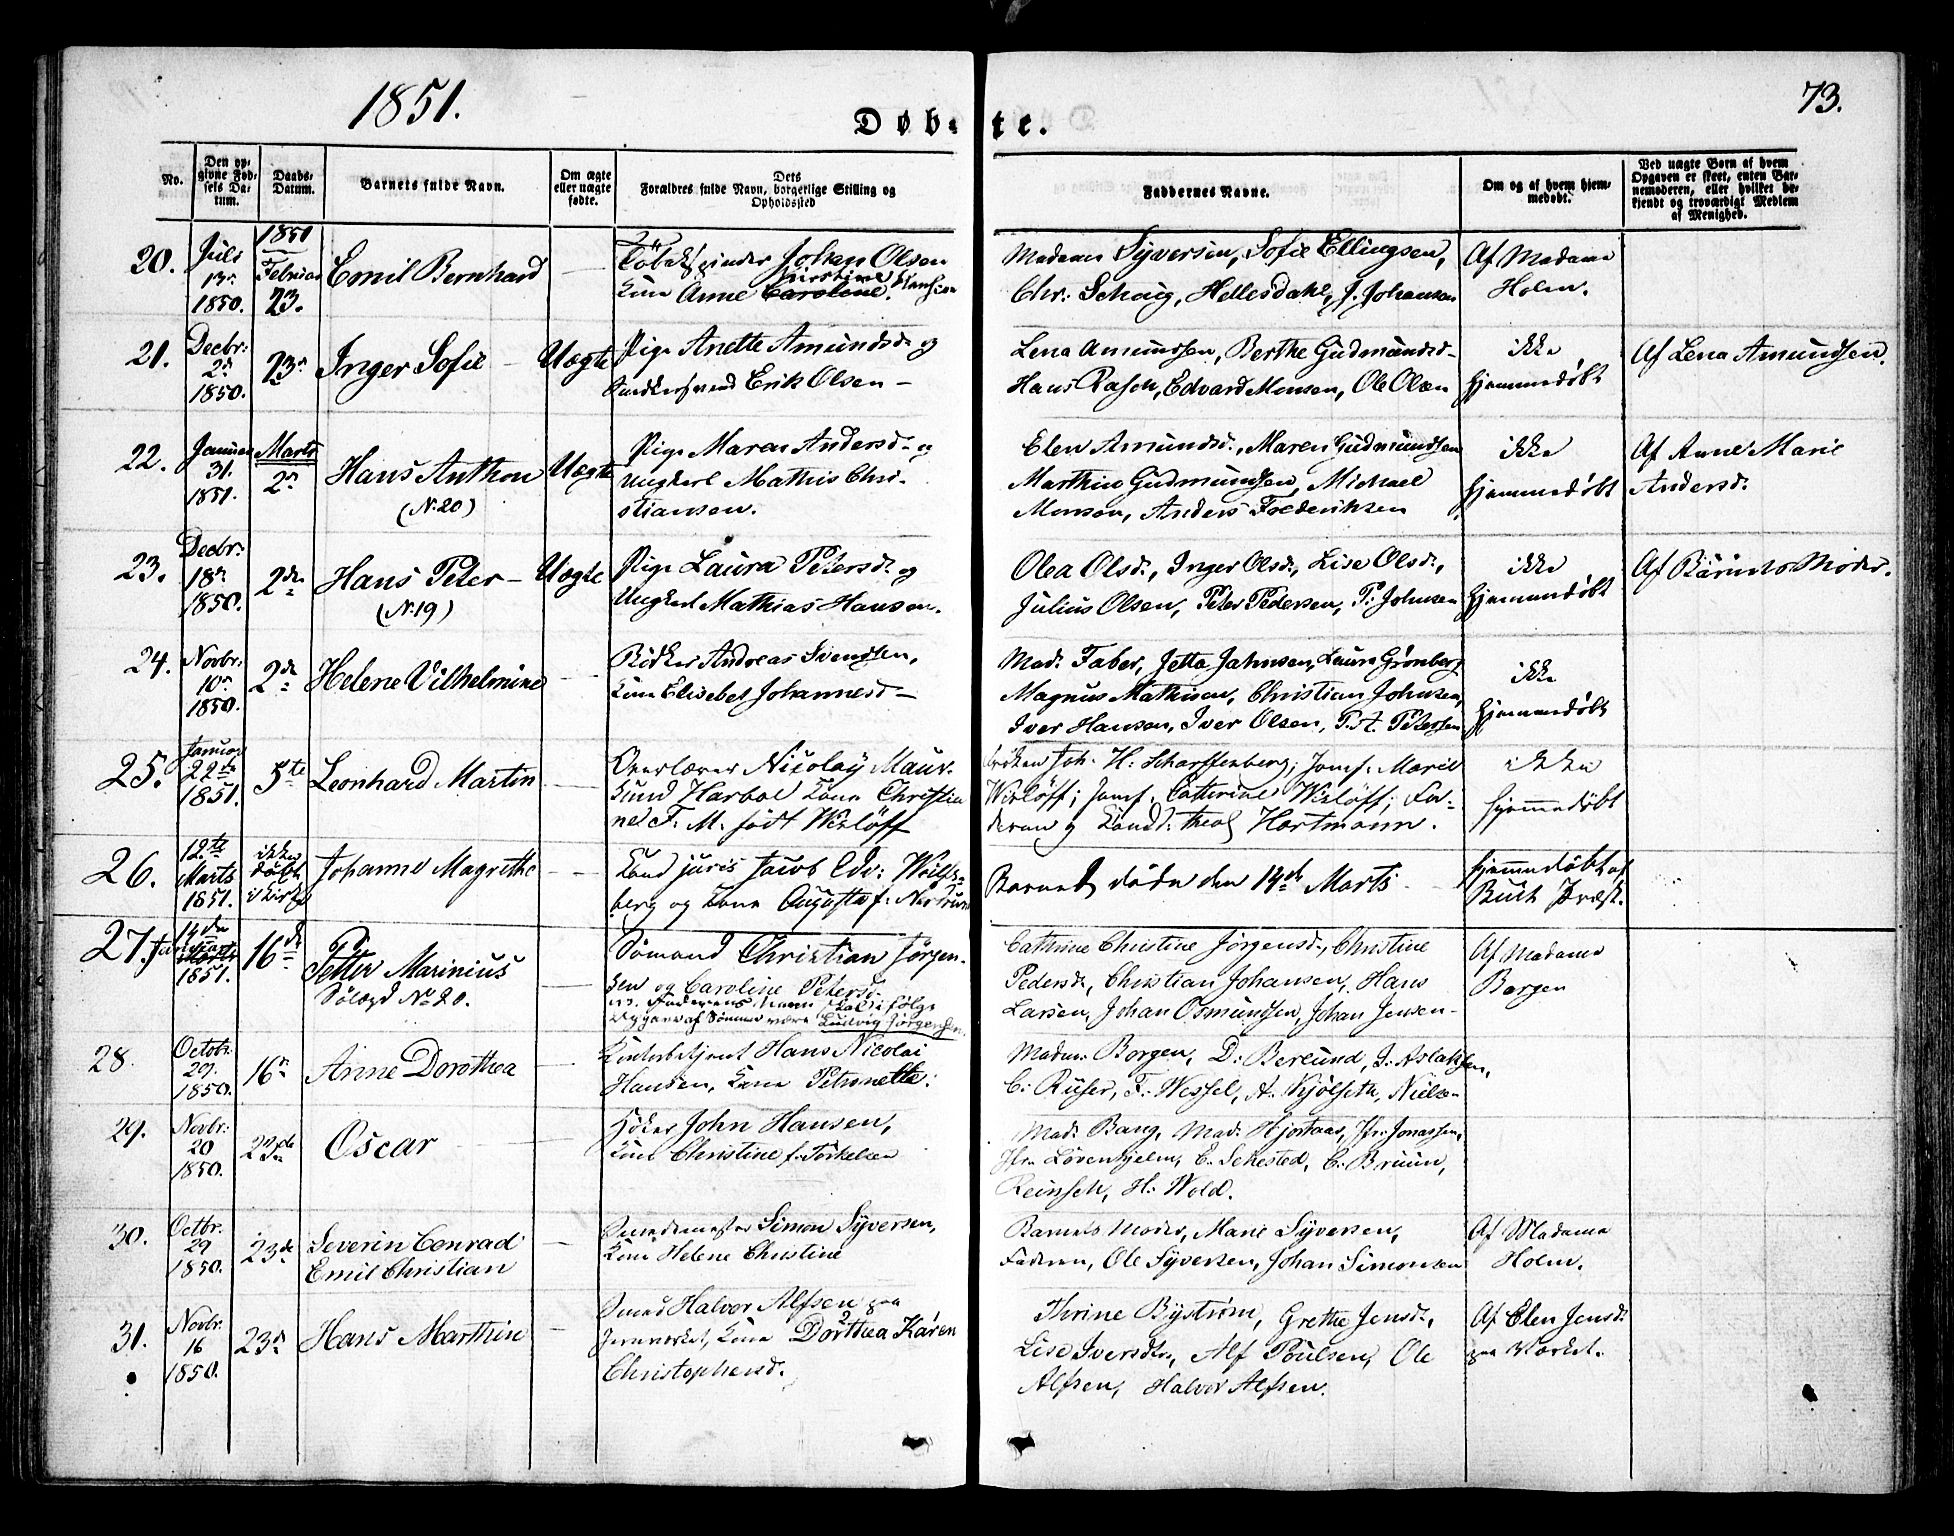 1851.
73.
Døbte.
No.
Den op-
givne Fød-
sels Da-
tum.
Daabs-
Datum.
Barnets fulde Navn.
Om ægte
eller uægte
fødte.
Dets
Forældres fulde Navn, borgerlige Stilling og
Opholdssted
Faddernes Navne.
Om og af hvem hjem-
medøbt.
Ved uægte Børn af hvem
Opgaven er skeet, enten Bar-
nemoderen, eller hvilket be-
kjendt og troværdigt Medlem
af Menighed.
20.
Juli
13de
1850.
1851
Februar
23.
Emil Bernhard
Johan Olsen
Kone Anne Caroline Kirstine Hansen
Madam Syversen, Sofie Ellingsen,
Chr: Schoug, Hellesdahl, J. Johansen
Af Madame
Holm.
21.
Decbr:
2d
1850.
23d
Inger Sofie
Uægte
Pige Anette Amundsd: og
Erik Olsen
Lena Amundsen, Berthe Gudmundsd-
Hans Rasch, Edvard Monsen, Ole Olsen
ikke
hjemmedøbt
Af Lena Amundsen.
22.
Januar
31.
1851.
Marts
2d
Hans Anthon
(N.20)
Uægte
Pige Maren Andersd- og
Ungkarl Mathis Chri-
stiansen.
Elen Amundsd:, Maren Gudmundsen
Marthin Gudmundsen, Michael
Monsen, Anders Frederiksen
ikke
hjemmedøbt
Af Anne Marie
Andersd:
23.
Decbr:
18de
1850.
2den
Hans Peter
(N.19)
Uægte
Pige Laura Petersd: og
Ungkarl Mathias Hansen.
Olea Olsd:, Inger Olsd:, Lise Olsd:,
Julius Olsen, Peter Pedersen, P: Johnsen
ikke
hjemmedøbt
Af Barnets Moder.
24.
Novbr:
10de
1850.
2de
Helene Vilhelmine
Bødker Andreas Svendsen,
Kone Elisebet Johannesd-
Mad: Faber, Jetta Jahnsen, Laura Grønberg
Magnus Mathisen, Christian Johnsen,
Iver Hansen, Iver Olsen, P. A. Petersen
ikke
hjemmedøbt
25.
Januar
22de
1851.
5te
Leonhard Martin
Overlærer Nicolay Maur-
Harboe Kone Christia
ne F. M. født Wisløff
Frøken Joh. H. Scharffenberg; Jomf. Marie
Wisløff; Jomf. Cathrine Wisløff; Fa-
deren og Cand: theol Hartmann.
ikke
hjemmedøbt
26.
12te
Marts
1851.
ikke
døbt
i Kirke
Johanne Magrethe
Cand juris Jacob Edv: Wulfs-
berg og Kone Augusta f: Nerdrum
Barnet døde den 14de Marts
hjemmedøbt af
Buck Præst.
27.
14de
Januar
1851.
16de
Petter Marinius
Sølægd No 20.
Sømand Christian Jørgen-
sen og Caroline Petersd.
N.B. Faderens Navn skal i følge
Opgave af Sømmed være Ludvig Jørgensen
Cathrine Christine Jørgensd:, Christine
Pedersd:, Christian Johansen, Hans
Larsen, Johan Osmundsen, Johan Jensen-
Af Madame
Borgen
28.
Octobr.
29.
1850.
16de
Anne Dorothea
Contorbetjent Hans Nicolai
Hansen, Kone Petronelle.
Madm: Borgen, D: Berlund, J: Aslaksen,
C: Ruser, F: Wessel, A. Kjølseth, Nielsen
29.
Novbr:
20
1850.
23de
Oscar
Høker John Hansen,
Kone Christine f. Torkelsen
Mad: Bang, Mad: Hjortaas, Jfr: Jonassen,
Hr: Løvenhjelm, E. Sehested, C. Bruun,
Reinsch, H. Wold.
30.
Octbr.
29
1850.
23de
Severin Conrad
Emil Christian
Simon Syversen,
Kone Helene Christine
Barnets Moder, Marie Syversen,
Faderen, Ole Syversen, Johan Simonsen
Af Madame
Holm.
31.
Novbr:
16
1850.
23de
Hans Marthin
Smed Halvor Alfsen paa
Jernverket, Kone Dorthea Karen
Christophersd.
Thrine Bystrøm, Grethe Jensd:,
Lise Iversdtr, Alf Poulsen, Ole
Alfsen, Halvor Alfsen.
Af Elen Jensd:
paa Værket.